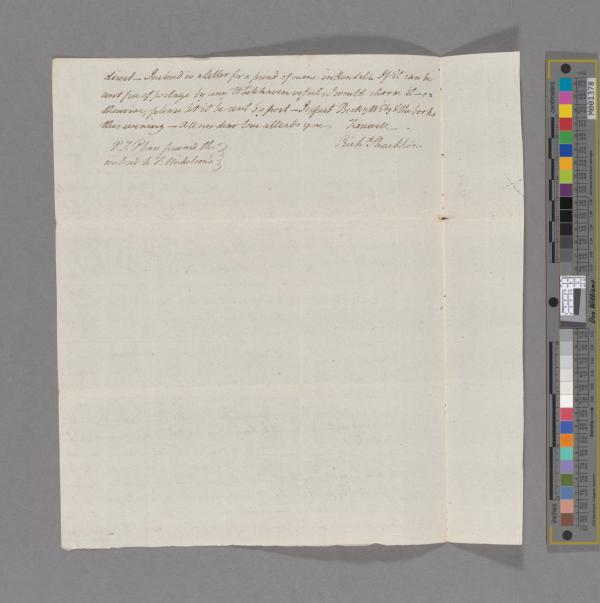 direct — Inclosed is a Letter for a friend of mine in Kendal. If it can be
sent free of postage by any Whitehaven vessel, I would choose it — o
therwise, please let it be sent by post — Becky & the
this evening — All our dear love attends you. Farewell
Rich.d Shackleton
P.S. Please forward the
inclosed to
M001378
centimetres
inches
Don Williams